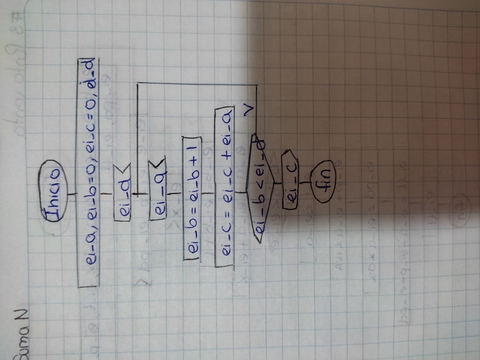 Suma N
Inicio
ei_a, ei_b=0, ei_c=0, d_d
ei_d
ei_a
ei_b = ei_b + 1
ei_c = ei_c + ei_a
ei_b < ei_d
V
ei_c
fin